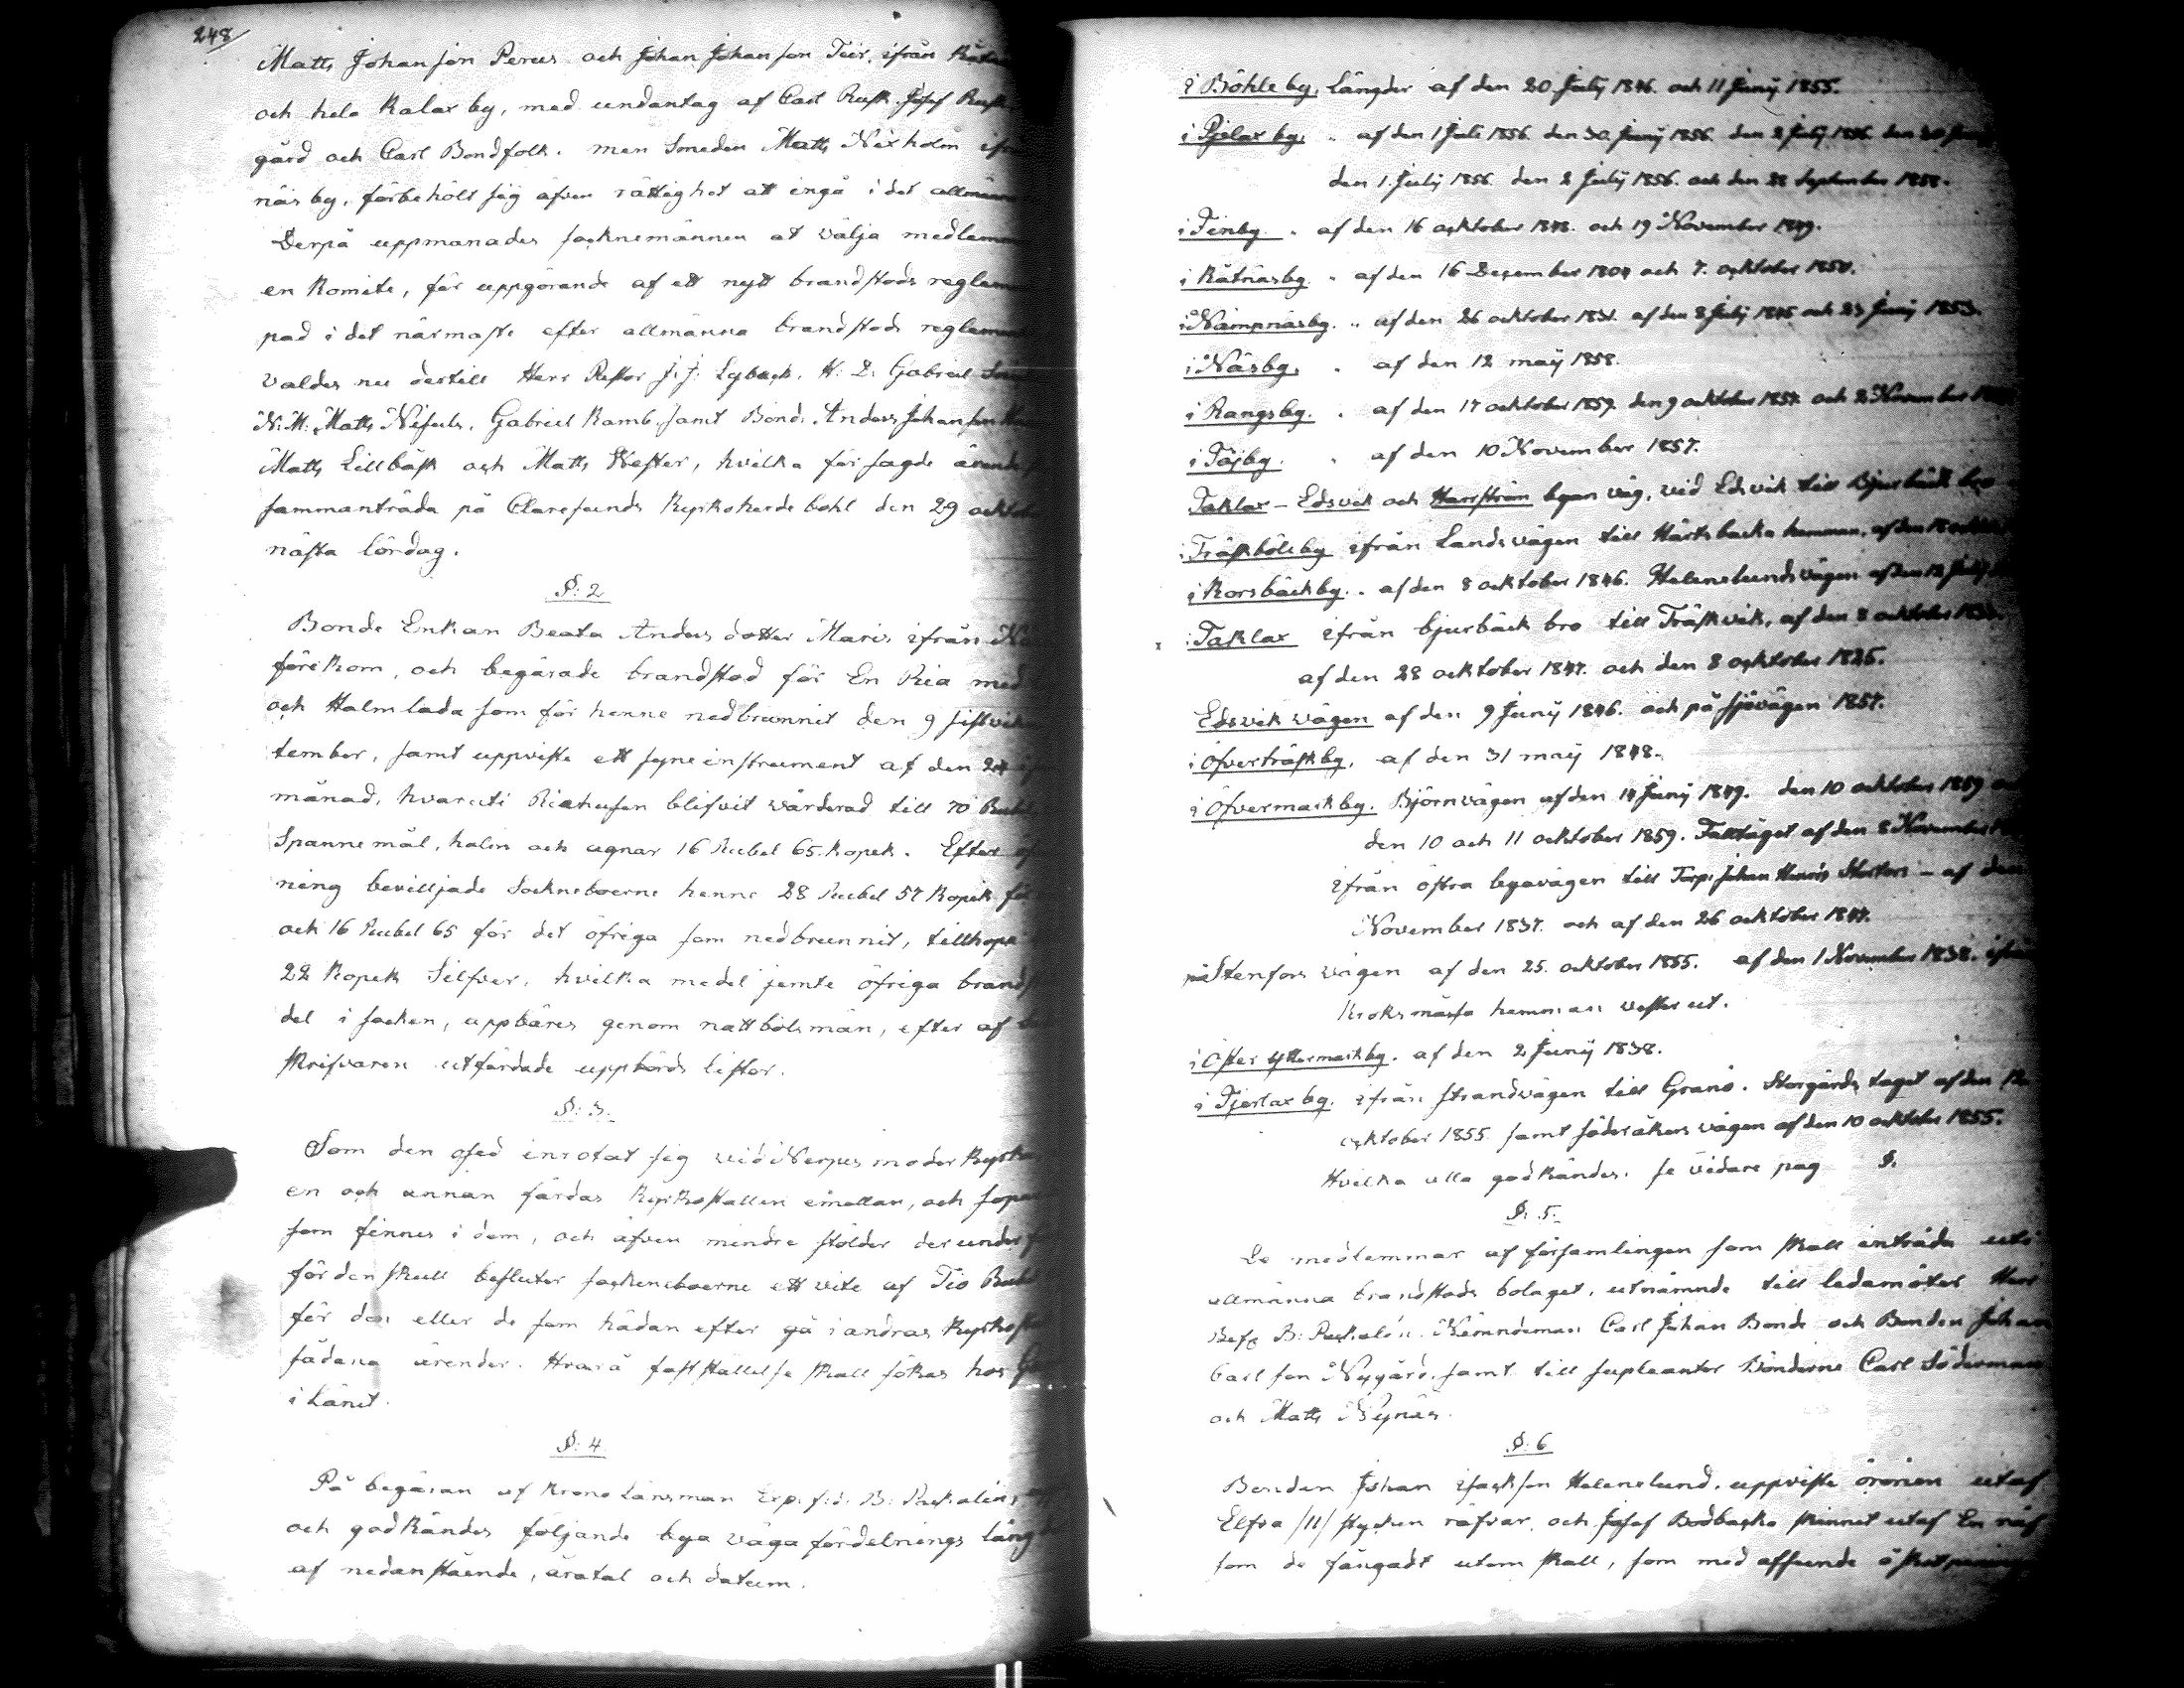 248/
Matts Johansson Perus och Johan Johansson Teir, ifrån
och hela Kalax by, med undantag af Carl Rusk. Josef
gård och Carl Bondfolk. men Smeden Matts Nixholm
näs by, förbehölt sig äfven rättighet att ingå i det allmänna
Derpå uppmanades socknemännen at välja
en Komite, för uppgörande af ett nytt brandstods
pad i det närmaste efter allmänna brandstods
valdes nu dertill Herr Pastor J. J. Lyback, H. D. Gabriel
N. M. Matts Nisuls, Gabriel Ramb, samt Bond. Anders Johansson
Matts Lillbäck och Matts Wester, hvilka för sagde
sammanträda på Claresunds Kyrkoherde bohl den 29
nästa lördag.
§: 2
Bonde Enkan Beata Anders dotter Maris ifrån
förekom, och begärade brandstod för En Ria med
och Halmlada som för henne nedbrunnit den 9
tember, samt uppviste ett syneinstrument af den 24
månad, hvaruti Riahusen blifvit värderad till 70
Spannemål, halm och agnar 16 Rubel 65. kopek. Efter
ning bevilljade Sockneboerne henne 28 Rubel 57 Kopek för
och 16 Rubel 65 för det öfriga som nedbrunnit, tillhopa
22 Kopek Silfver, hvilka medel jemte öfriga
del i socken, uppbäres genom nattbolsmän, efter af
skrifvaren utfärdade uppbörds listor.
§: 3.
Som den osed inrotat sig vid Nerpes moder
en och annan färdas Kyrkostallen emellan, och
som finnes i dem, och äfven mindre stölder der under
för den skull besluter sockneboerne ett vite af Tio
för den eller de som hädan efter gå i andras
sådana ärender. Hvarå fastställelse skall sökas hos
i Länet.
§: 4
På begäran af Krono Länsman
och godkändes följande bya väga fördelnings
af nedanstående, åratal och datum.
i Böhle by, Längder af den 20 July 1846. och 11 Junij 1855.
i Pjelax by. " af den 1 Juli 1856. den 30 Junij 1856. den 2 July 1856.
den 1. July 1856. den 2 July 1856. och den 28 September 1858.
i Finby. " af den 16 ocktober 1848. och 19 November 1849.
i Kåtnäsby. " af den 16 December 1804 och 7. ocktober 1858.
i Nämpnäsby. " af den 26 ocktober 1831. af den 8 July 1845 och 23 Junij 1853.
i Näsby. " af den 12 maij 1858.
i Rangsby. " af den 17 ocktober 1857. den 9 ocktober 1857. och 2 November
i Töjby. " af den 10 November 1857.
Taklax – Edsvik och Harrström byars väg, vid Edsvik till Bjurbäck bro
i Träskböle by ifrån Landsvägen till Härtsbacka hemman, af den
i Korsbäck by. " af den 8 ocktober 1846. Helenelundsvägen af den 12
i Taklax ifrån bjurbäck bro till Träskvik, af den 8 ocktober
af den 28 ocktober 1847. och den 8 ocktober 1825.
Edsvik vägen af den 9 Junij 1846. och på sjövägen 1857.
i Öfverträsk by, af den 31 maij 1848.
i Öfvermark by. Björnvägen af den 14 Junij 1849. den 10 ocktober 1859
den 10 och 11 ocktober 1859. Falltåget af den 8 November
ifrån östra byavägen till Torp. Johan – af den
November 1837. och af den 26 ocktober 1847.
på Stenfors vägen af den 25. ocktober 1855. af den 1 November 1838.
hemman vester ut.
i Öster Yttermark by. af den 2 Junij 1838.
i Tjerlax by. ifrån strandvägen till Granö. Storgårds taget af den 12
ocktober 1855 samt söderåkers vägen af den 10 ocktober 1855.
Hvilka alla godkändes. se vidare pag §.
§: 5.
De medlemmar af församlingen som skall inträda uti
allmänna brandstods bolaget, utnämnde till ledamöter Herr
Nämndeman Carl Johan Bonde och Bonden Johan
Carlson Nygård, samt till supleanter Bönderne Carl Söderman
och Matts Nynäs.
§: 6
Bonden Johan Isackson Helenelund, uppviste öronen utaf
Elfva /11/ stycken räfvar, och Josef Bodbacka skinnet utaf En räf
som de fångadt utom skall, som med